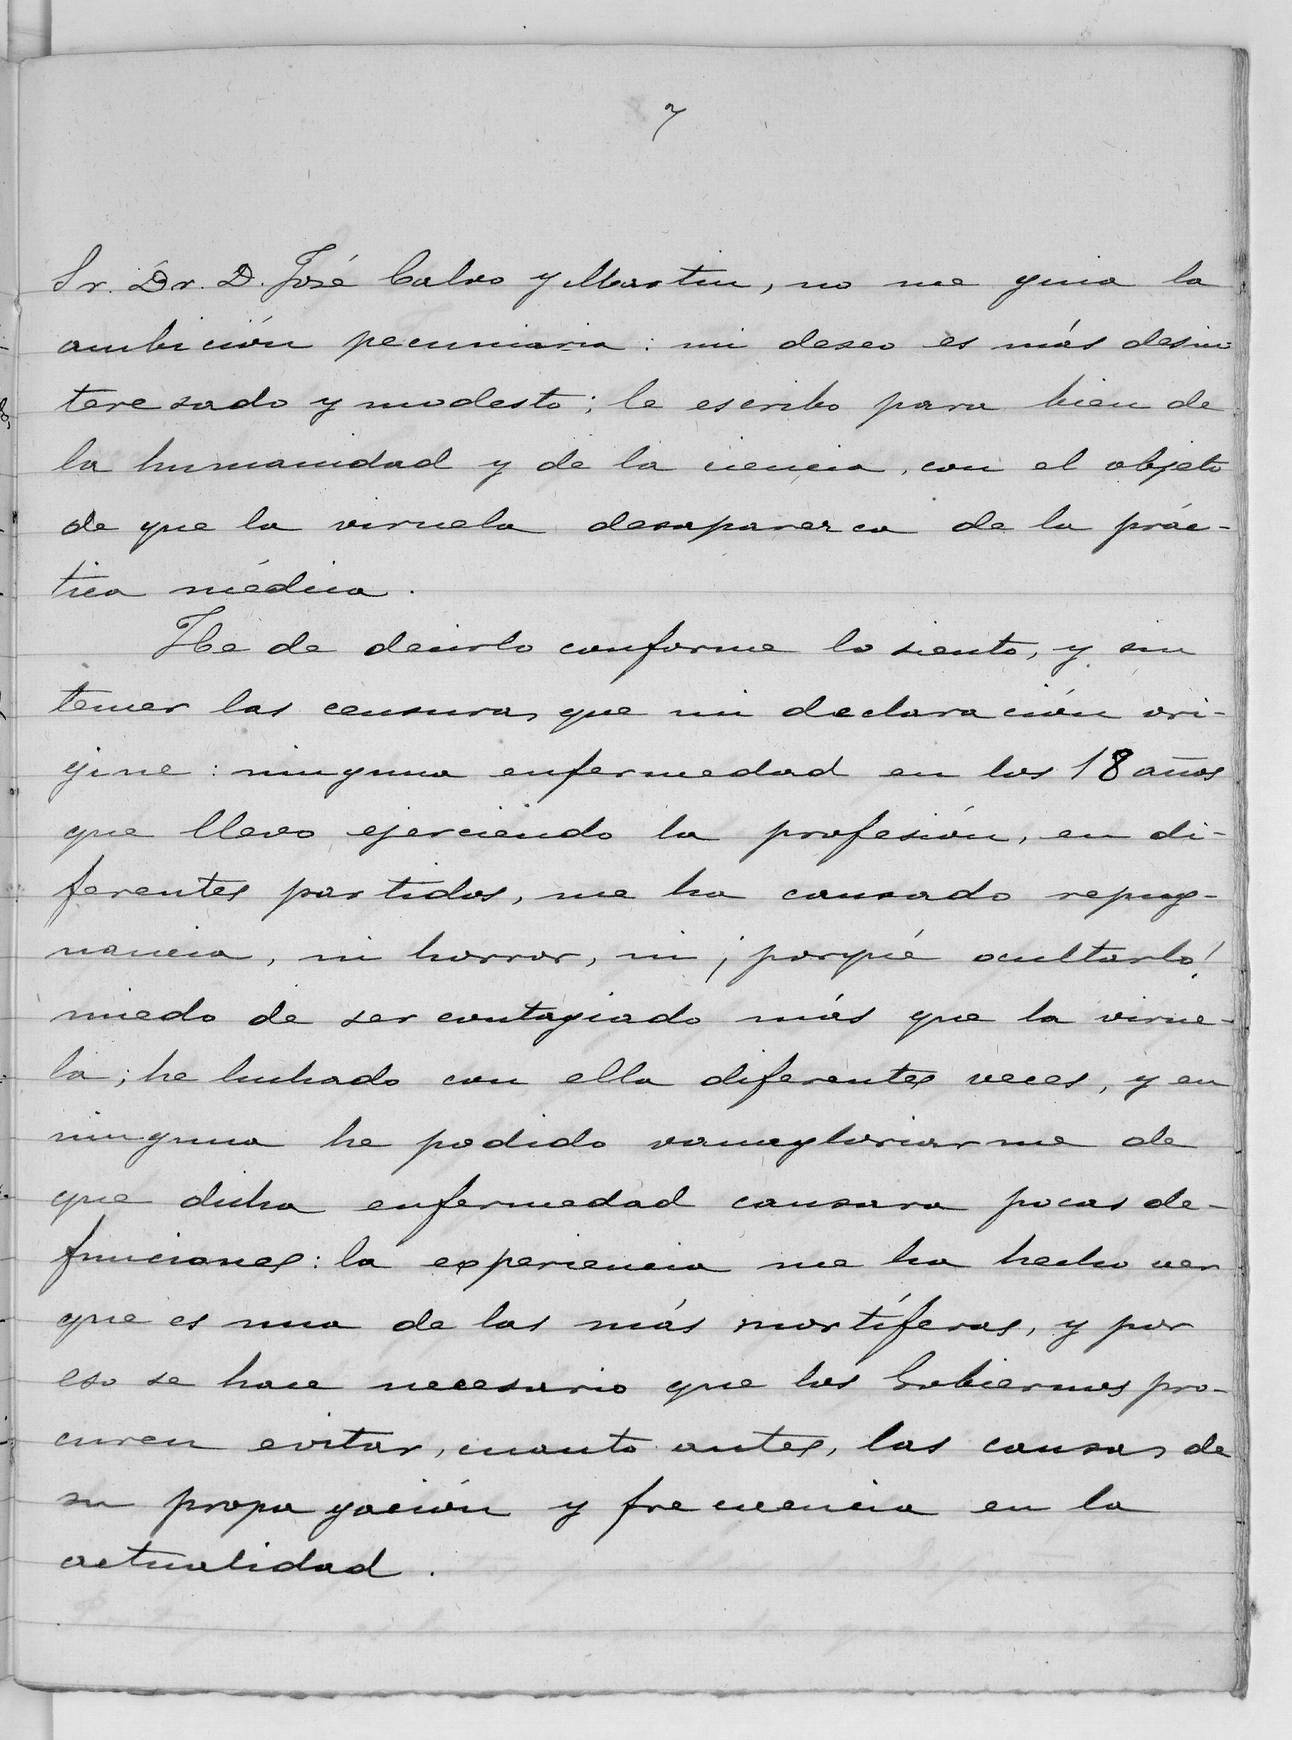 7
Sr. Dr. D. José Calvo y Martin, no me guia la
ambición pecuniaria: mi deseo es más desin
teresado y modesto; le escribo para bien de
la humanidad y de la ciencia, con el objeto
de que la viruela desaparezca de la prác-
tica médica.
He de decirlo conforme lo siento, y sin
temer las censuras que mi declaración ori-
gine: ninguna enfermedad en los 18 años
que llevo ejerciendo la profesión, en di-
ferentes partidos, me ha causado repug-
nancia, ni horror, ni ¡porqué ocultarlo!
miedo de ser contagiado más que la virue-
la; he luchado con ella diferentes veces, y en
ninguna he podido vanagloriarme de
que dicha enfermedad causara pocas de-
funciones: la experiencia me ha hecho ver
que es una de las más mortíferas, y por
eso se hace necesario que los Gobiernos pro-
curen evitar, cuanto antes, las causas de
su propagación y frecuencia en la
actualidad.